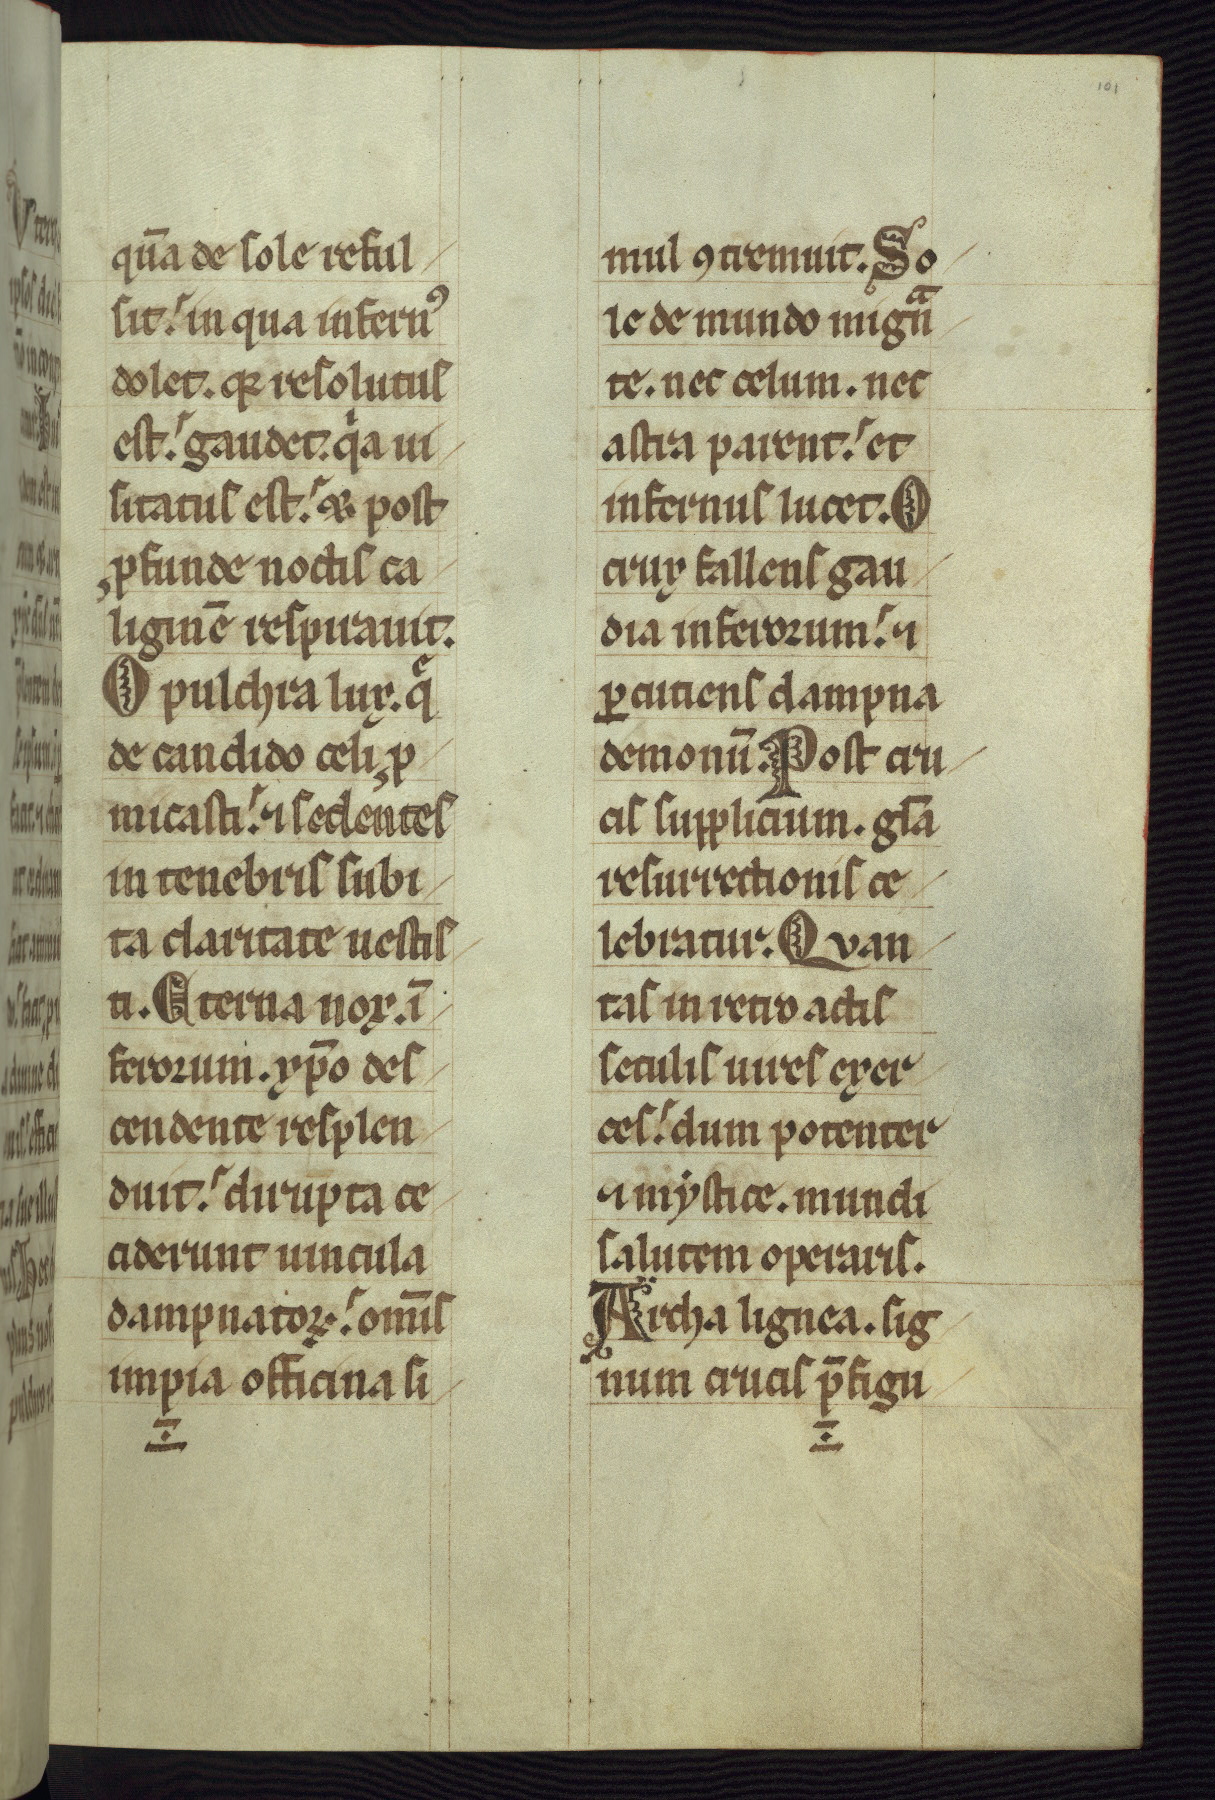 101
qūa de sole reful
sit. in qua infernꝰ
dolet. qꝛ resolutus
est. gaudet. qͥa ui
sitatus est. qꝛ post
ꝓfunde noctis ca
liginē respirauit.
O pulchra lux. qͤ
de candido celi ꝓ
micasti. ⁊ sedentes
in tenebris subi
ta claritate uestis
ti. Eterna nox. ī
ferorum. xp̄o des
cendente resplen
duit. dirupta ce
ciderunt uincula
dampnatoꝝ. om̄is
impia officina si
mul ꝯtremuit. So
le de mundo migᷓn
te. nec celum. nec
astra parent. et
infernus lucet. O
crux fallens gau
dia inferorum. ⁊
ꝑcutiens dampna
demonū. Post cru
cis supplicium. gl̄a
resurrectionis ce
lebratur. Quan
tas in retro actis
seculis uires exer
ces. dum potenter
⁊ mẏstice. mundi
salutem operaris.
Archa lignea. sig
num crucis p̄figu